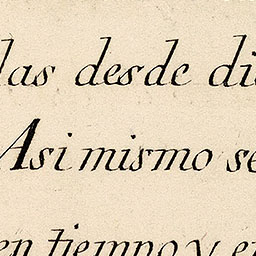 las desde di
Asi mismo se
en tiempo y e